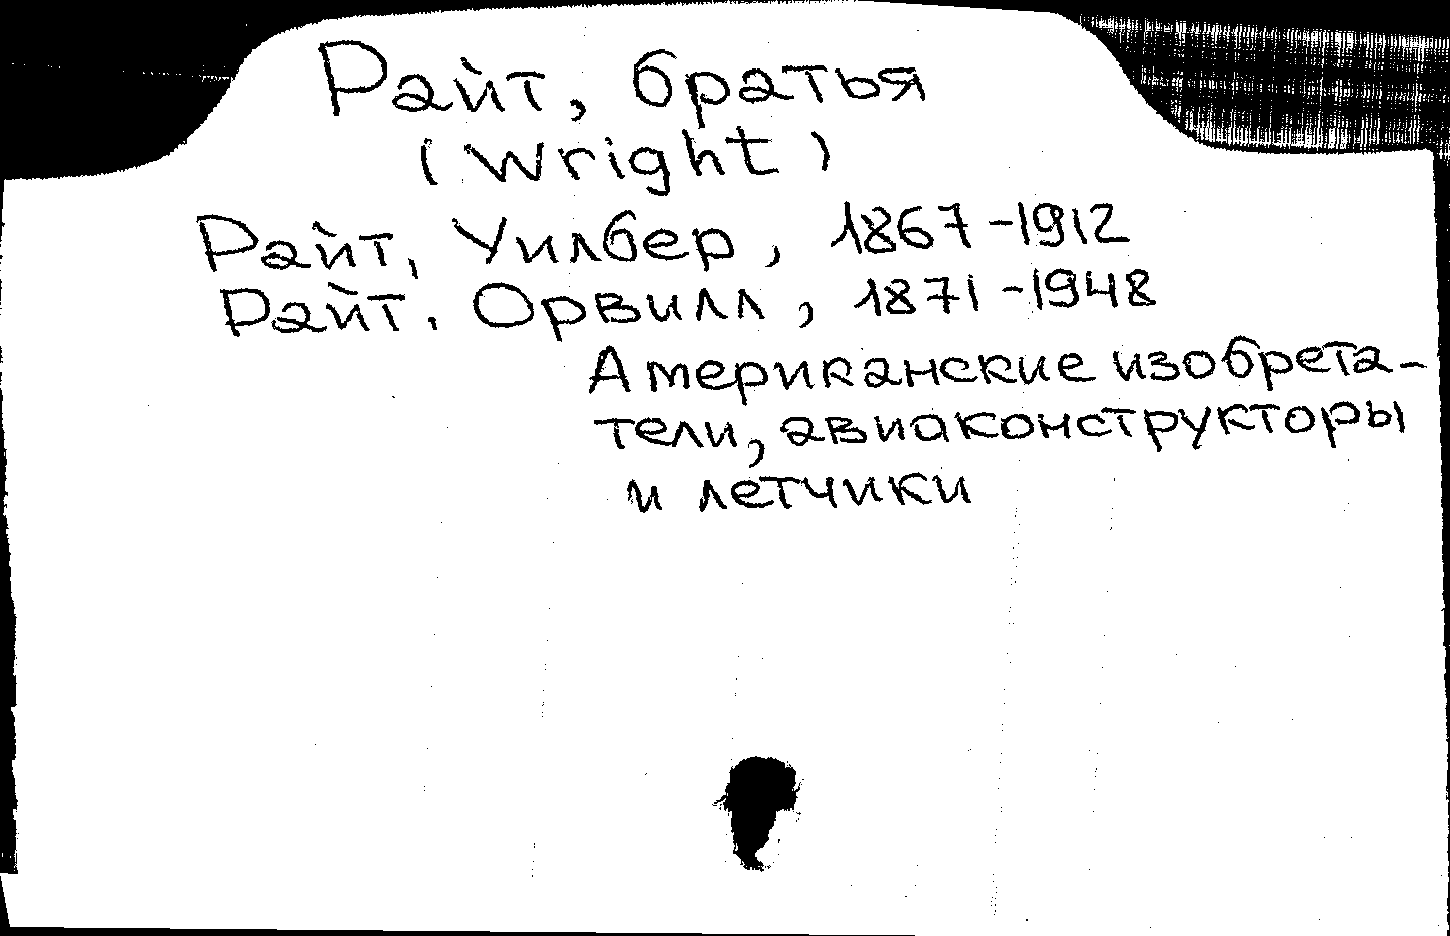 Райт, братья
(Wright)
Райт, Уилбер, 1867-1912
Райт. Орвилл, 1871-1948
Американские изобрета-
тели, авиаконструкторы
и летчики